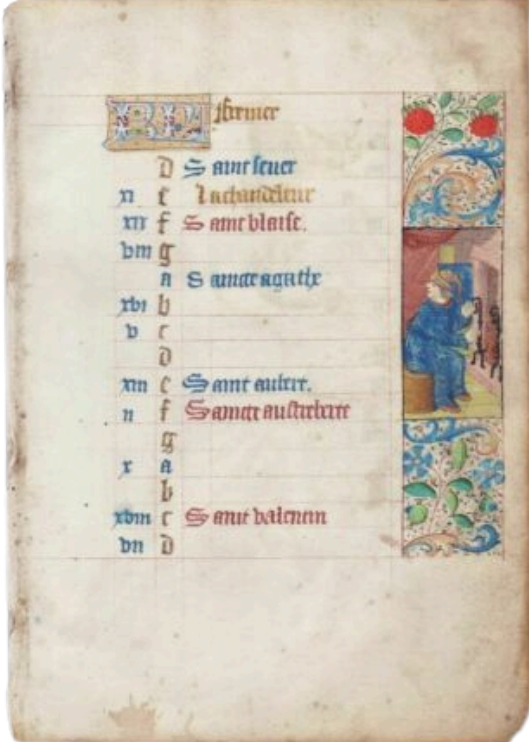 KL février
d Saint sever
xi e La chandeleur
xix f Saint blaise.
viii g
a Saincte agathe
xvi b
v c
d
xiii e Saint aubert.
ii f Saincte austreberte
g
x a
b
xviii c Saint valentin
vii d